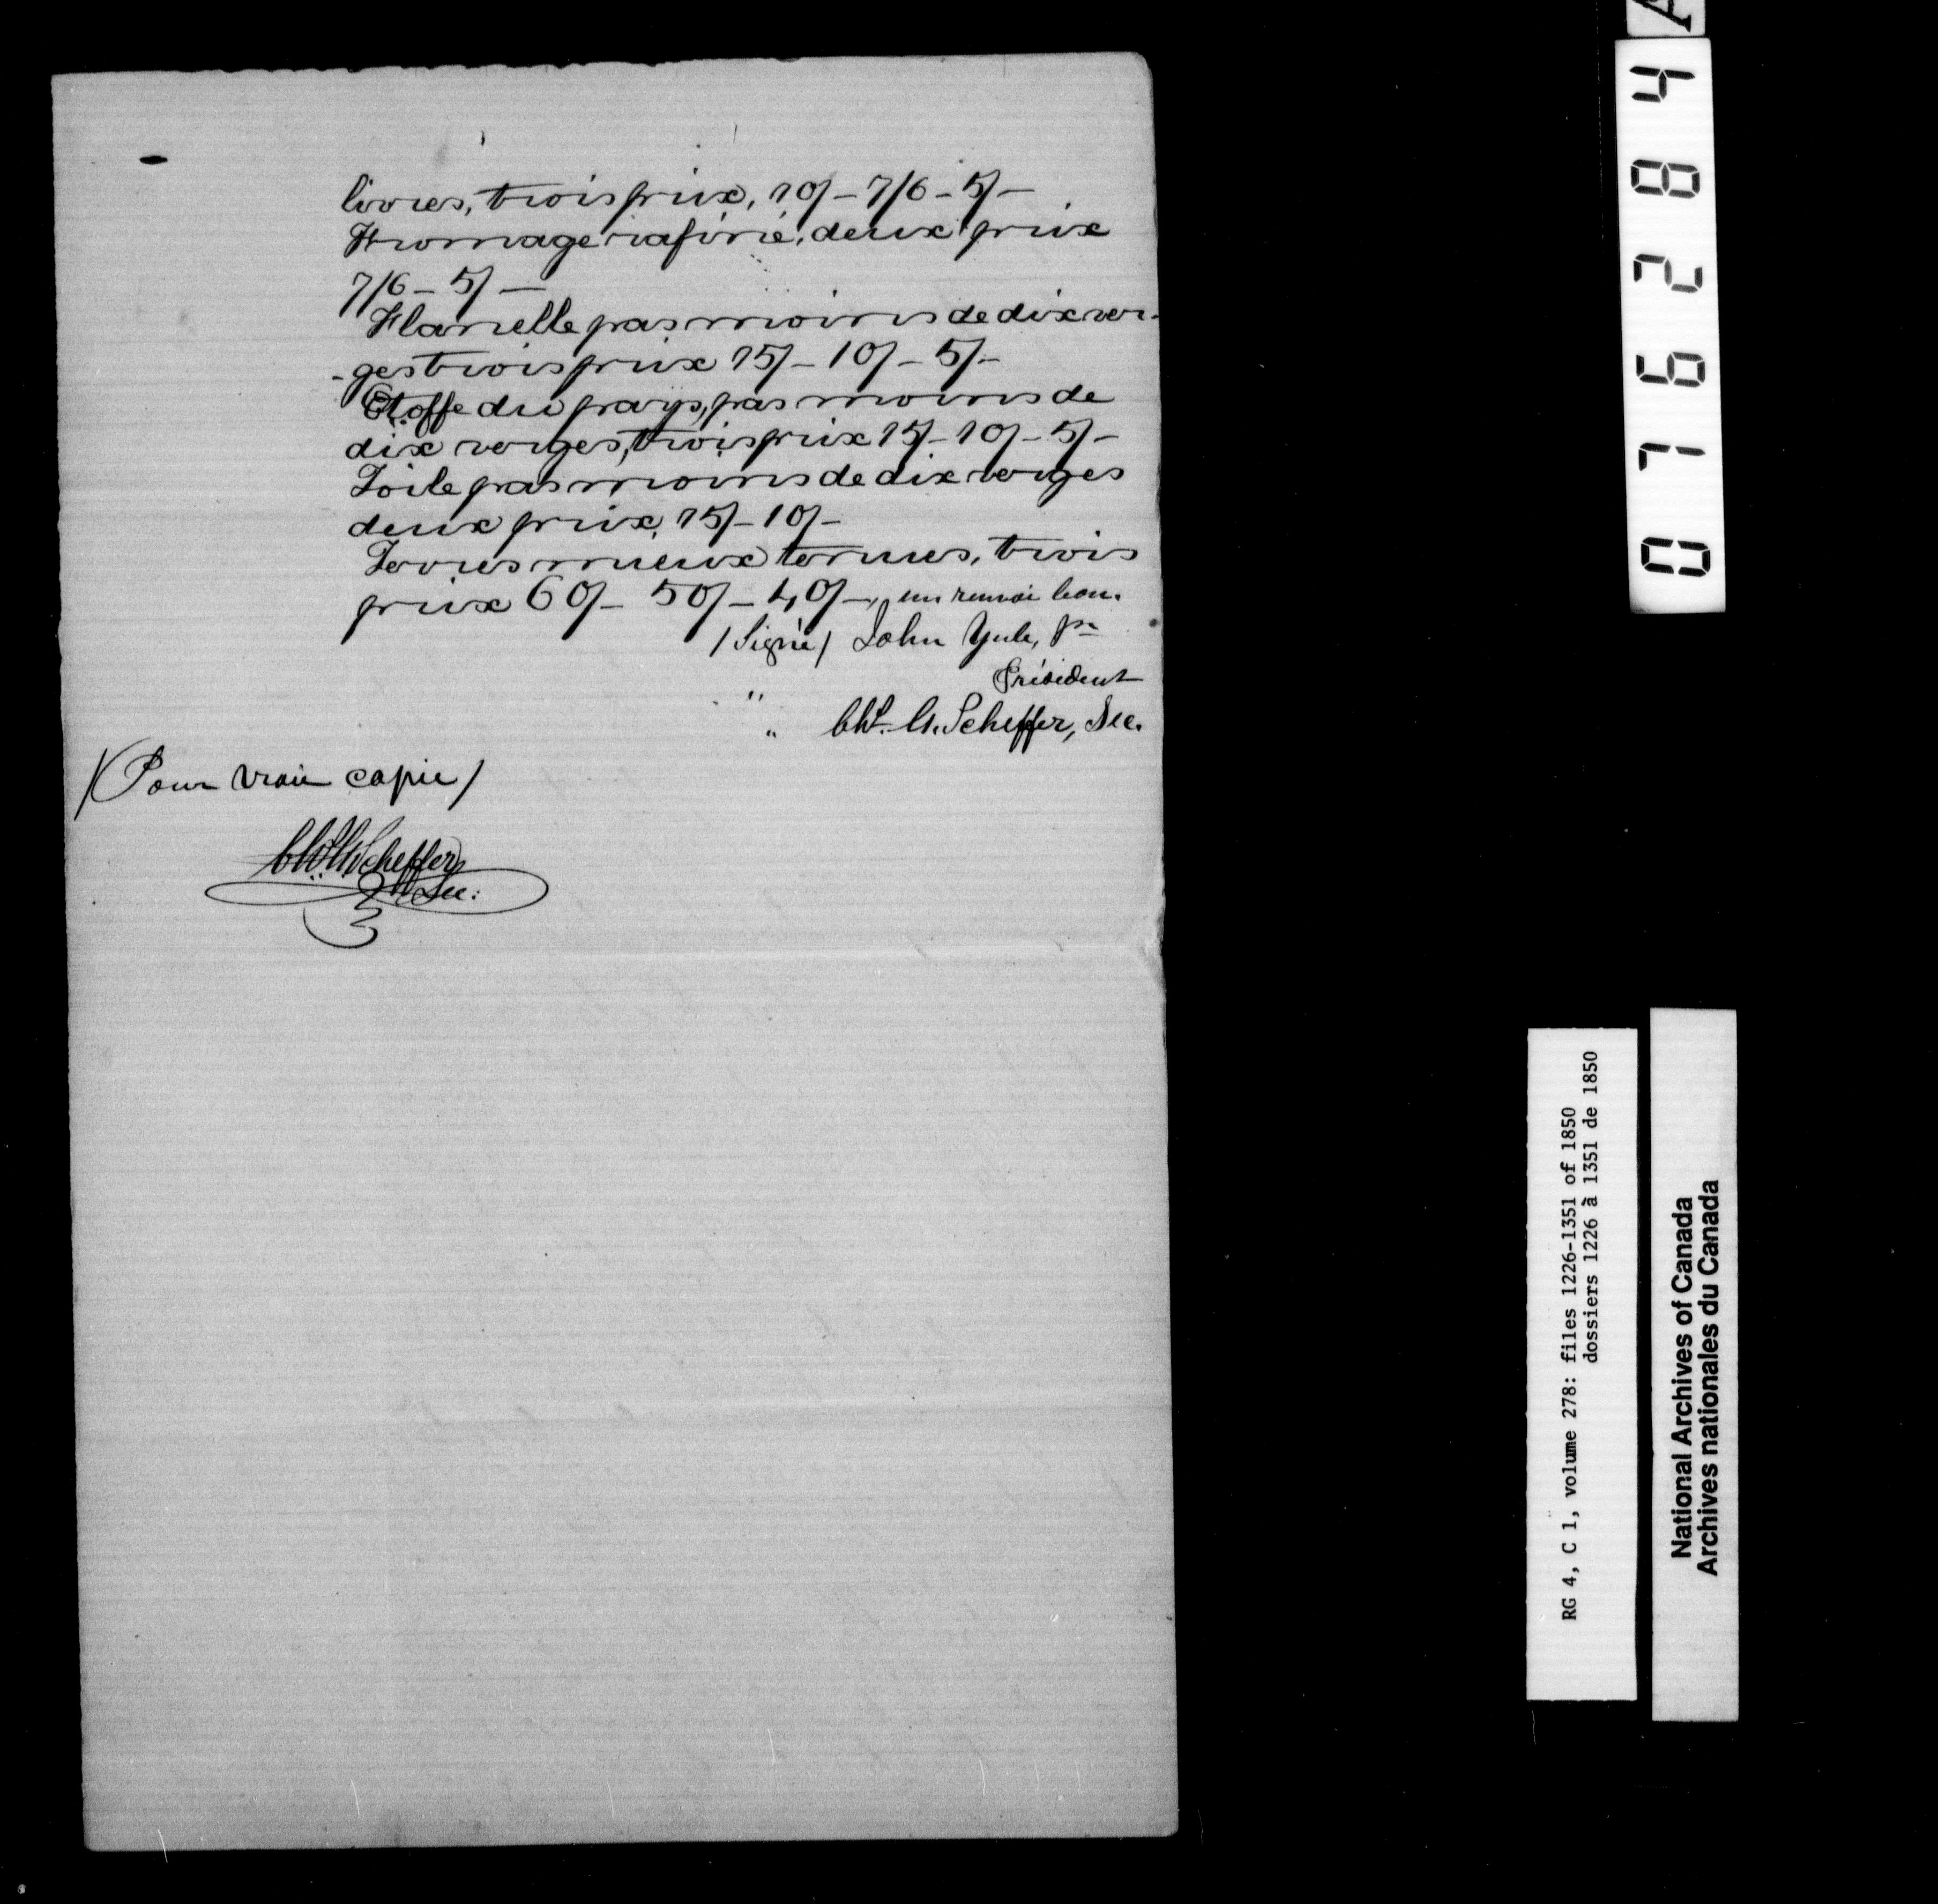 livres, trois prix, 10/- 7/6 - 5/-
Fromage rafiné, deux prix
7/6 - 5/-
Flanelle pas moins de dix ver-
-ges trois prix 15/- 10/- 5/-
Etoffe du pays, pas moins de
dix verges, trois prix 15/- 10/- 5/-
Toile pas moins de dix verges
deux prix, 15/- 10/-
Terres mieux tenues, trois
prix 60/- 50/- 40/-, un renvoi bon.
/Signé/ John Yule, Jr
Président
" " Chs. G. Scheffer, Sec.
/Pour vraie copie/
Chs. G. Scheffer
Sec:
076284
RG 4, C 1, volume 278: files 1226-1351 of 1850
dossiers 1226 à 1351 de 1850
National Archives of Canada
Archives nationales du Canada